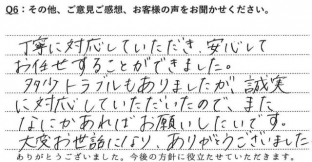 Q6：その他、ご意見ご感想、お客様の声をお聞かせください。
丁寧に対応していただき、安心して
お任せすることができました。
多少トラブルもありましたが、誠実
に対応していただいたので、また
なにかあればお願いしたいです。
大変お世話になり、ありがとうございました
ありがとうございました。今後の方針に役立たせていただきます。